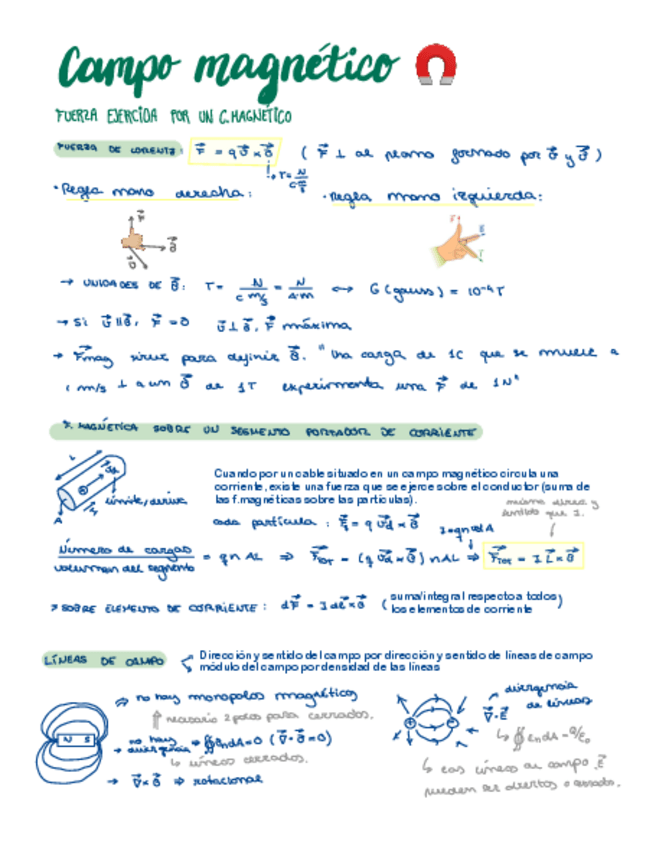 Campo magnético
FUERZA EJERCIDA POR UN C. MAGNÉTICO
FUERZA DE LORENTZ: F⃗ = q v⃗ × B⃗ ( F⃗ ⊥ al plano formado por v⃗ y B⃗ )
T = N / C m/s
· Regla mano derecha: · regla mano izquierda:
F⃗
B⃗
v⃗
→ UNIDADES DE B⃗: T = N / C m/s = N / A·m ↔ G (gauss) = 10⁻⁴ T
→ Si v⃗ ∥ B⃗, F⃗ = 0 v⃗ ⊥ B⃗, F⃗ máxima
→ F⃗mag sirve para definir B⃗. "Una carga de 1C que se mueve a
1 m/s ⊥ a un B⃗ de 1T experimenta una F⃗ de 1N"
F. MAGNÉTICA SOBRE UN SEGMENTO PORTADOR DE CORRIENTE
L
A
Cuando por un cable situado en un campo magnético circula una
corriente, existe una fuerza que se ejerce sobre el conductor (suma de
las f.magnéticas sobre las partículas).
misma direcc y
sentido que I.
cada partícula : F⃗ = q v⃗d × B⃗
I = qnvdA
Número de cargas / volumen del segmento = q n A L ⇒ F⃗TOT = (q v⃗d × B⃗) n A L ⇒ F⃗TOT = I L⃗ × B⃗
→ SOBRE ELEMENTO DE CORRIENTE : dF⃗ = I dl⃗ × B⃗ (suma/integral respecto a todos
los elementos de corriente)
LÍNEAS DE CAMPO
Dirección y sentido del campo por dirección y sentido de líneas de campo
módulo del campo por densidad de las líneas
N S
⇒ no hay monopolos magnéticos
necesario 2 polos para cerrados.
→ no hay divergencia ⇒ ∯ B n dA = 0 (∇⃗ · B⃗ = 0)
↳ líneas cerradas.
→ ∇⃗ × B⃗ ⇒ rotacional
+ -
divergencia
de líneas
∇⃗ · E⃗
↳ ∯ E n dA = Q/ε₀
↳ las líneas de campo E⃗
pueden ser abiertas o cerradas.